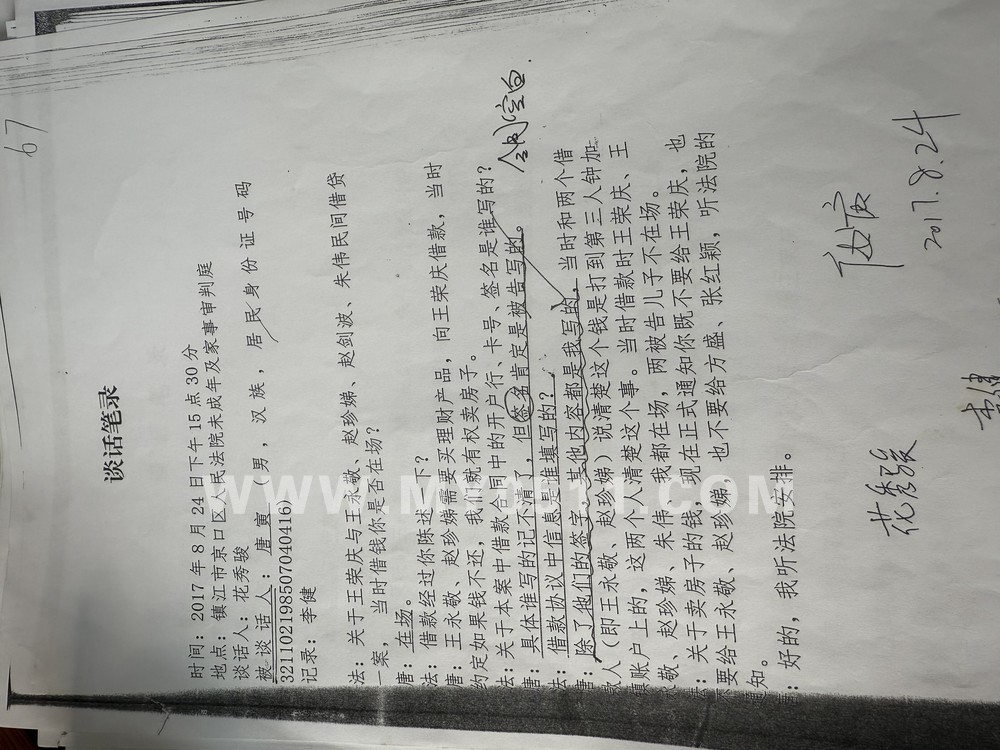 67
谈话笔录
时间：2017 年 8 月 24 日下午 15 点 30 分
地点：镇江市京口区人民法院未成年及家事审判庭
谈话人：花秀骏
被谈话人：唐寅（男，汉族，居民身份证号码
321102198507040416）
记录：李健
法：关于王荣庆与王永敬、赵珍娣、赵剑波、朱伟民间借贷
一案，当时借钱你是否在场？
唐：在场。
法：借款经过你陈述一下？
唐：王永敬、赵珍娣需要买理财产品，向王荣庆借款，当时
约定如果钱不还，我就有权卖房子。
法：关于本案中借款合同中的开户行、卡号、签名是谁写的？
唐：具体谁写的记不清了，但签名肯定是被告写的。
合同空白
法：借款协议中信息是谁填写的？
唐：除了他们的签字，其他内容都是我写的，当时和两个借
款人（即王永敬、赵珍娣）说清楚这个钱是打到第三人钟加
镇账户上的，这两个人清楚这个事。当时借款时王荣庆、王
永敬、赵珍娣、朱伟、我都在场，两被告儿子不在场。
法：关于卖房子的钱，现在正式通知你既不要给王荣庆，也
不要给王永敬、赵珍娣，也不要给方盛、张红颖，听法院的
通知。
唐：好的，我听法院安排。
唐寅
2017.8.24
花秀骏
李健
WWW.MY0511.COM